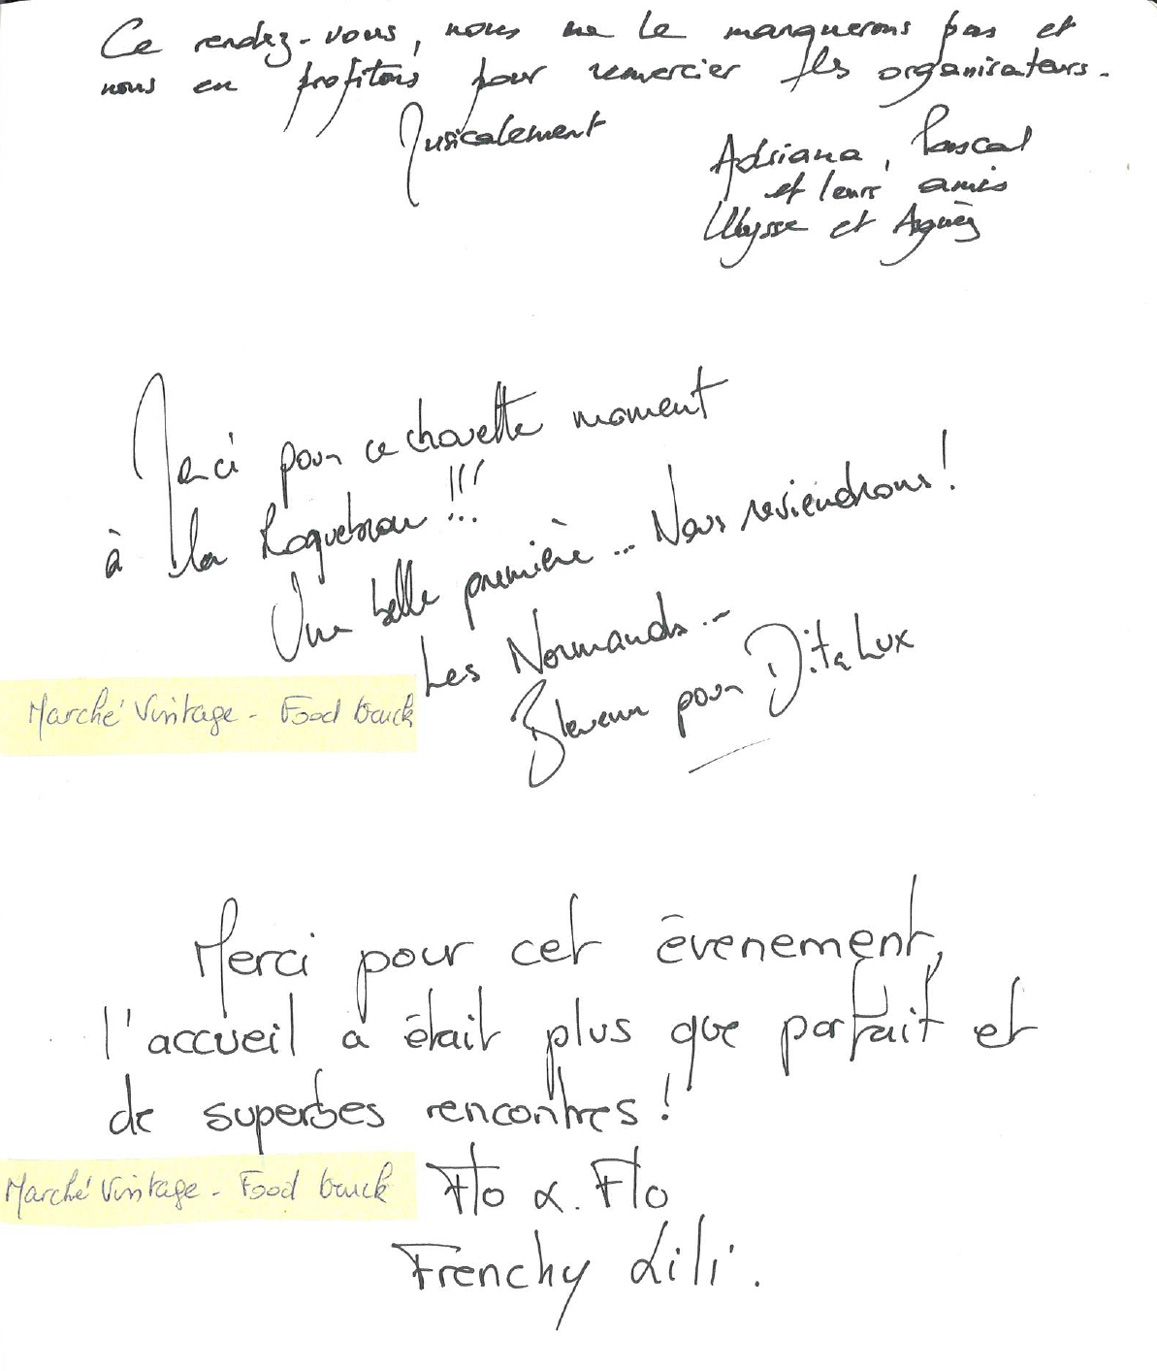 Ce rendez-vous, nous ne le manquerons pas et
nous en profitons pour remercier les organisateurs.
Musicalement
Adriana, Pascal
et leurs amis
Ulysse et Agnès
Merci pour ce chouette moment
à la Roquebrou !!!
Une belle première... Nous reviendrons!
Les Normands...
pour Dita Lux
Marché Vintage - Food truck
Merci pour cet évenement,
l'accueil a était plus que parfait et
de superbes rencontres!
Marché Vintage - Food truck
Flo &. Flo
Frenchy Lili.